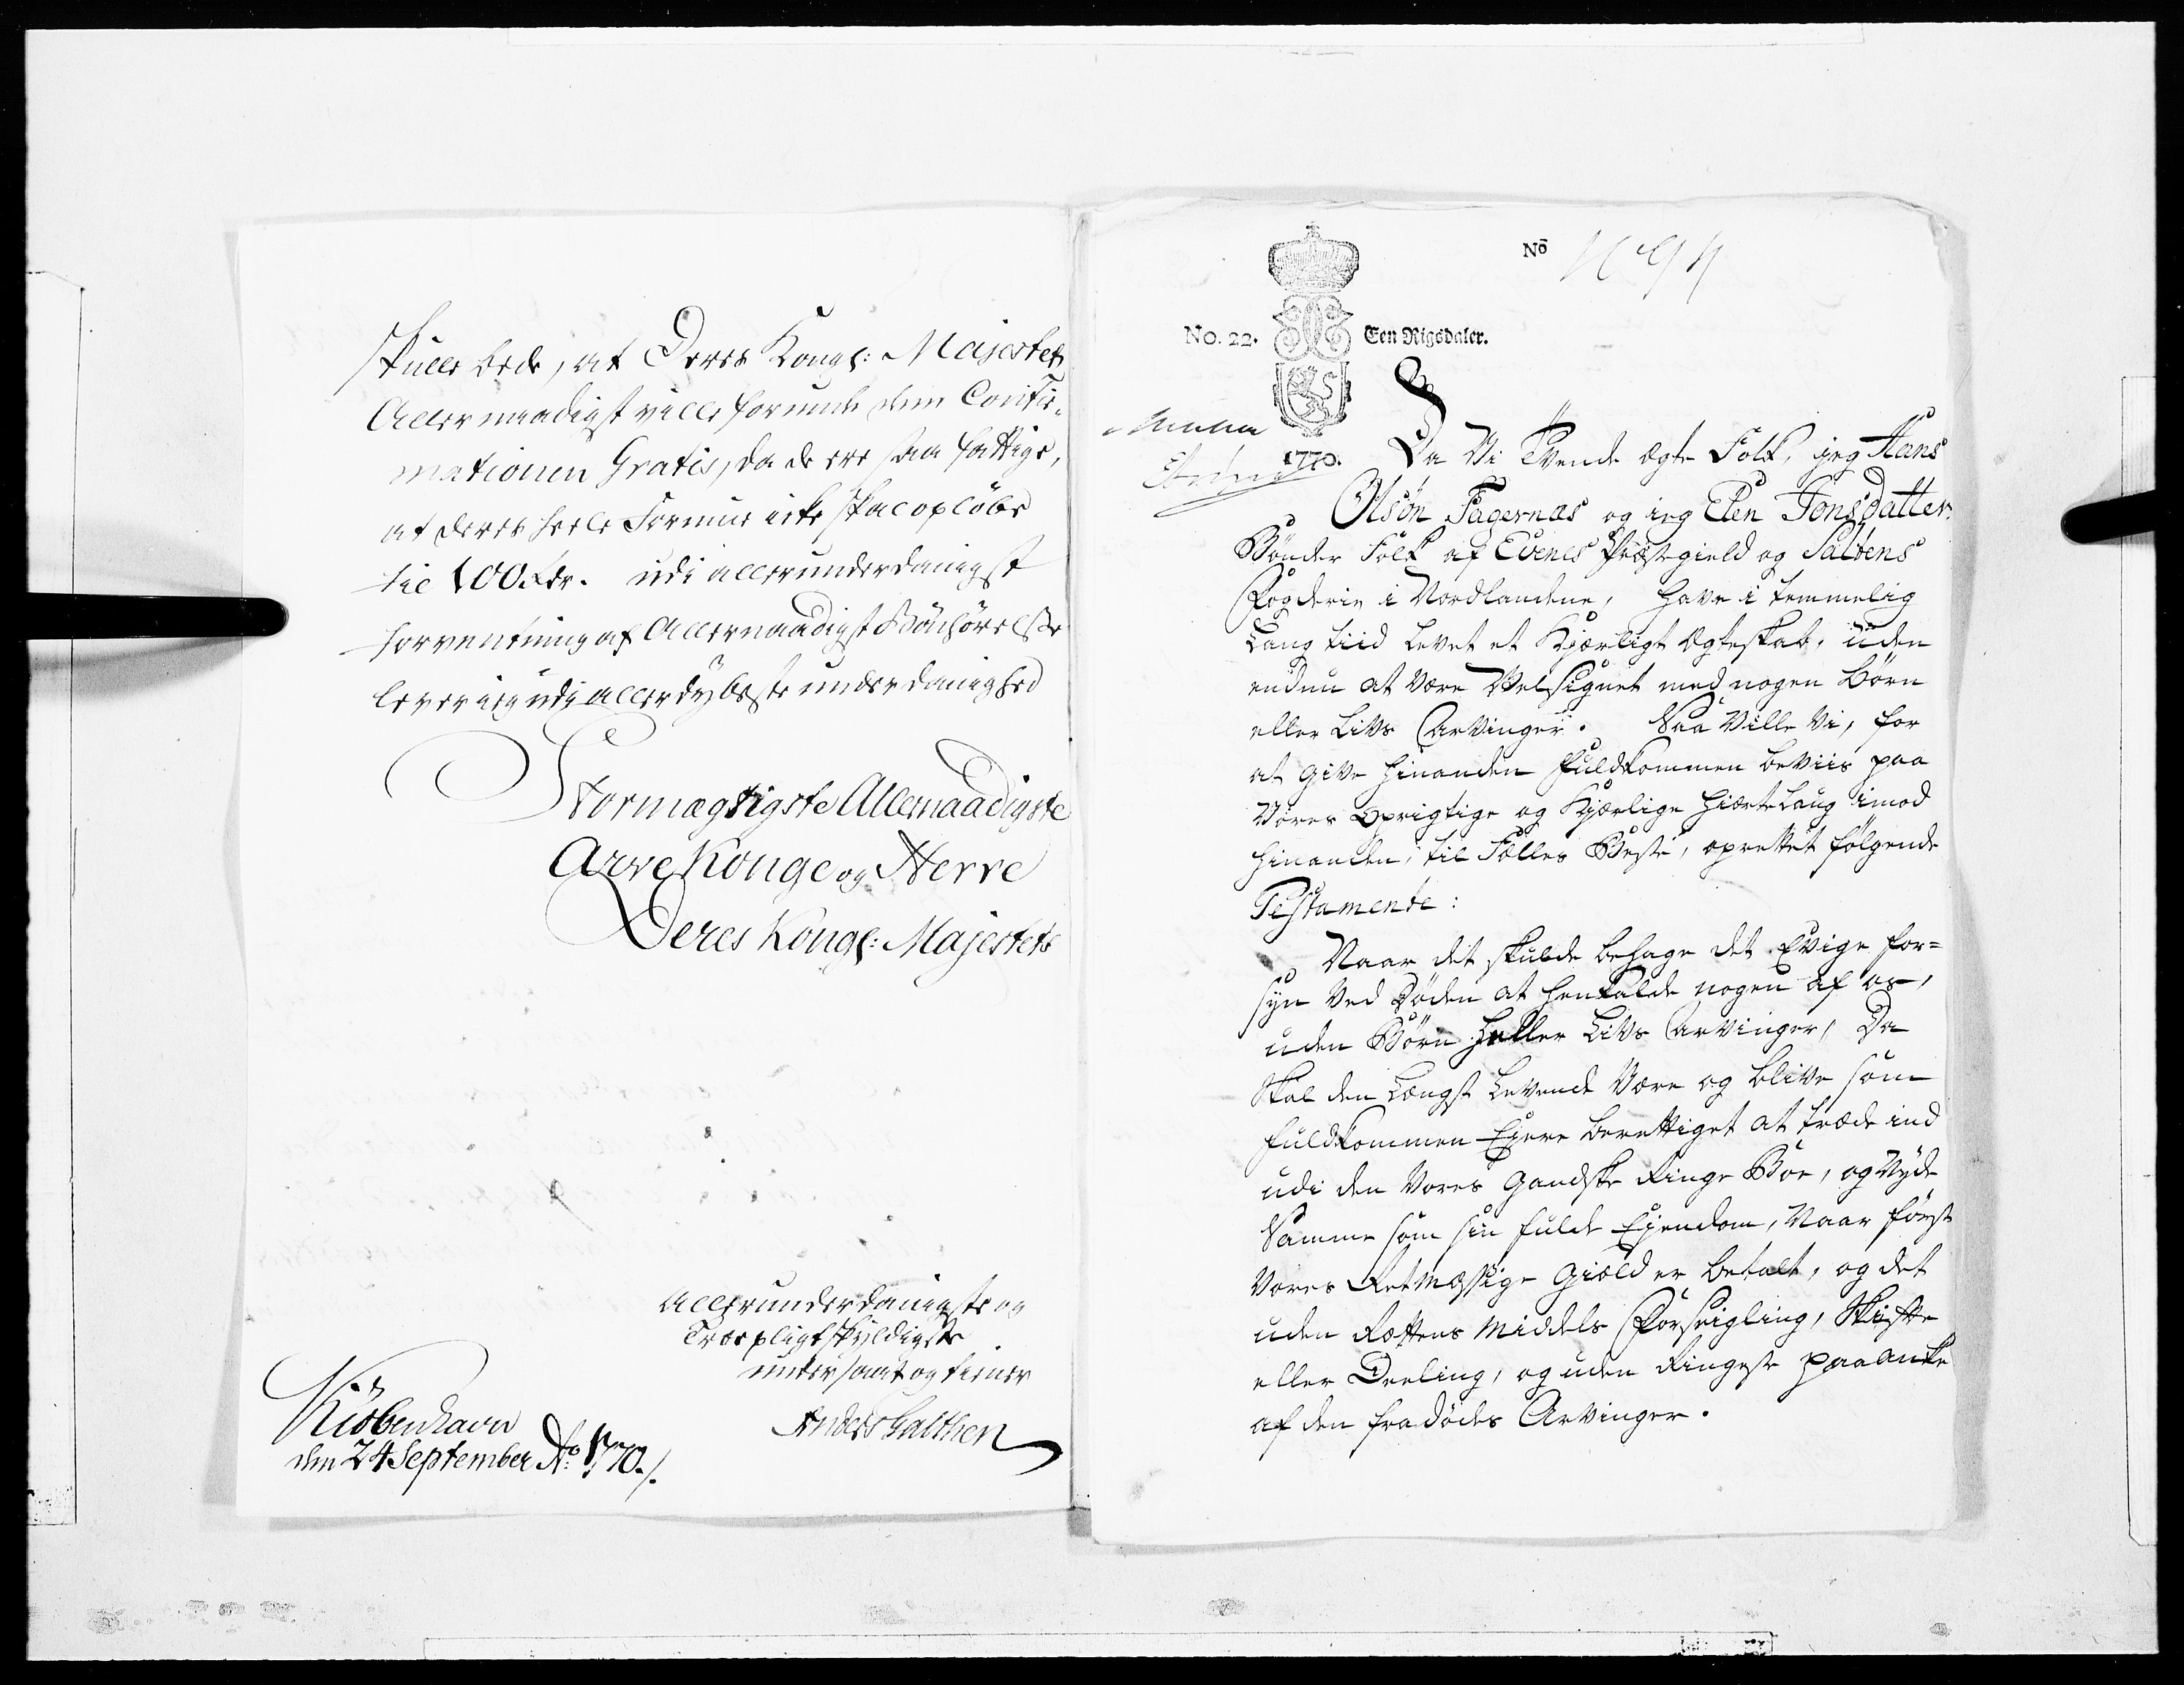 skulle bede, at Deres Kongl: Majestet
Allernaadigst ville forunde dem Confir-
mationen Gratis, da de ere saa fattige,
at deres heele Formue icke skal opløbe
til 100 Rdr. udi allerunderdanigst
forventning af Allernaadigst Bönhörelse
lever ieg udi allerdybeste underdanighed
Stormægtigste Allernaadigste
Arve Konge og Herre
Deres Kongl: Majestets
allerunderdanigste og
Troepligtskyldigste
undersaat og tiener
Anders Galthen
Kiöbenhavn
den 24 September Ao. 1770./.
No
No. 22.
Een Rigsdaler.
1770.
Da Vi Tvende ægte Folk, jeg Hans
Olsøn Fagernæs og ieg Elen Jonsdatter
Bønder Folk af Evenes Præstegield og Saltens
Fogderie i Nordlandene, have i temmelig
Lang tiid levet et Kjærligt Ægteskab, uden
endnu at være Velsignet med nogen Børn
eller Livs Arvinger. Saa Ville Vi, for
at give hinanden fuldkommen beviis paa
Vores oprigtige og Kjærlige hiertelaug imod
hinanden, til Fælles Beste, oprettet følgende
Testamente:
Naar det skulde behage det Evige for=
syn Ved Døden at henkalde nogen af os,
uden Børn heller Livs Arvinger, Da
Skal den Længst Levende Være og blive som
fuldkommen Eiere berettiget at træde ind
udi den Vores gandske Ringe Boe, og Nyde
Samme som sin fulde Ejendom, Naar først
Vores Retmæssige Giæld er betalt, og det
uden Rettens Middels Forseigling, Skifte
eller Deeling, og uden Ringeste paaanke
af den fradødes Arvinger.